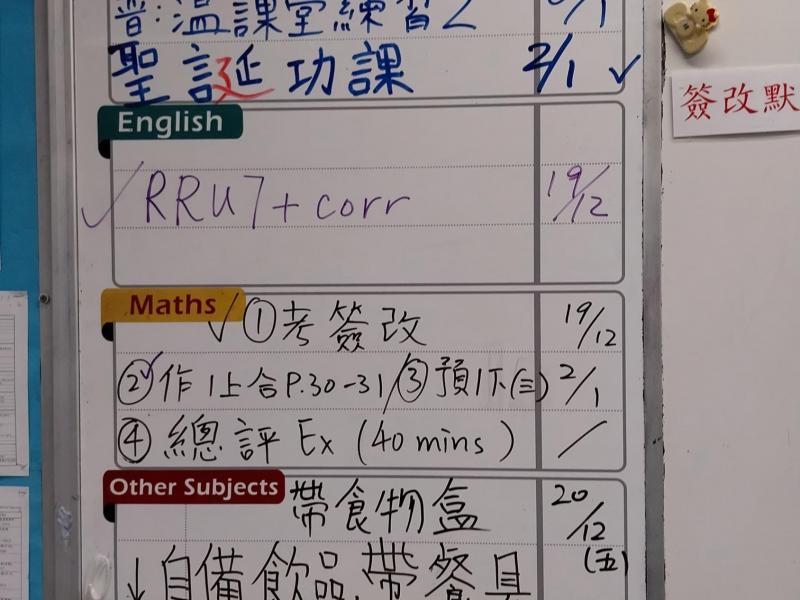 普:溫課堂練習乙 /1
聖誕功課 2/1 ✓
簽改默
English
✓ RRU7 + corr 19/12
Maths ✓ ①考簽改 19/12
②✓作1上合P.30-31/③預1下(三) 2/1
④總評 Ex (40 mins) /
Other Subjects 帶食物盒 20/12(五)
↓自備飲品,帶餐具